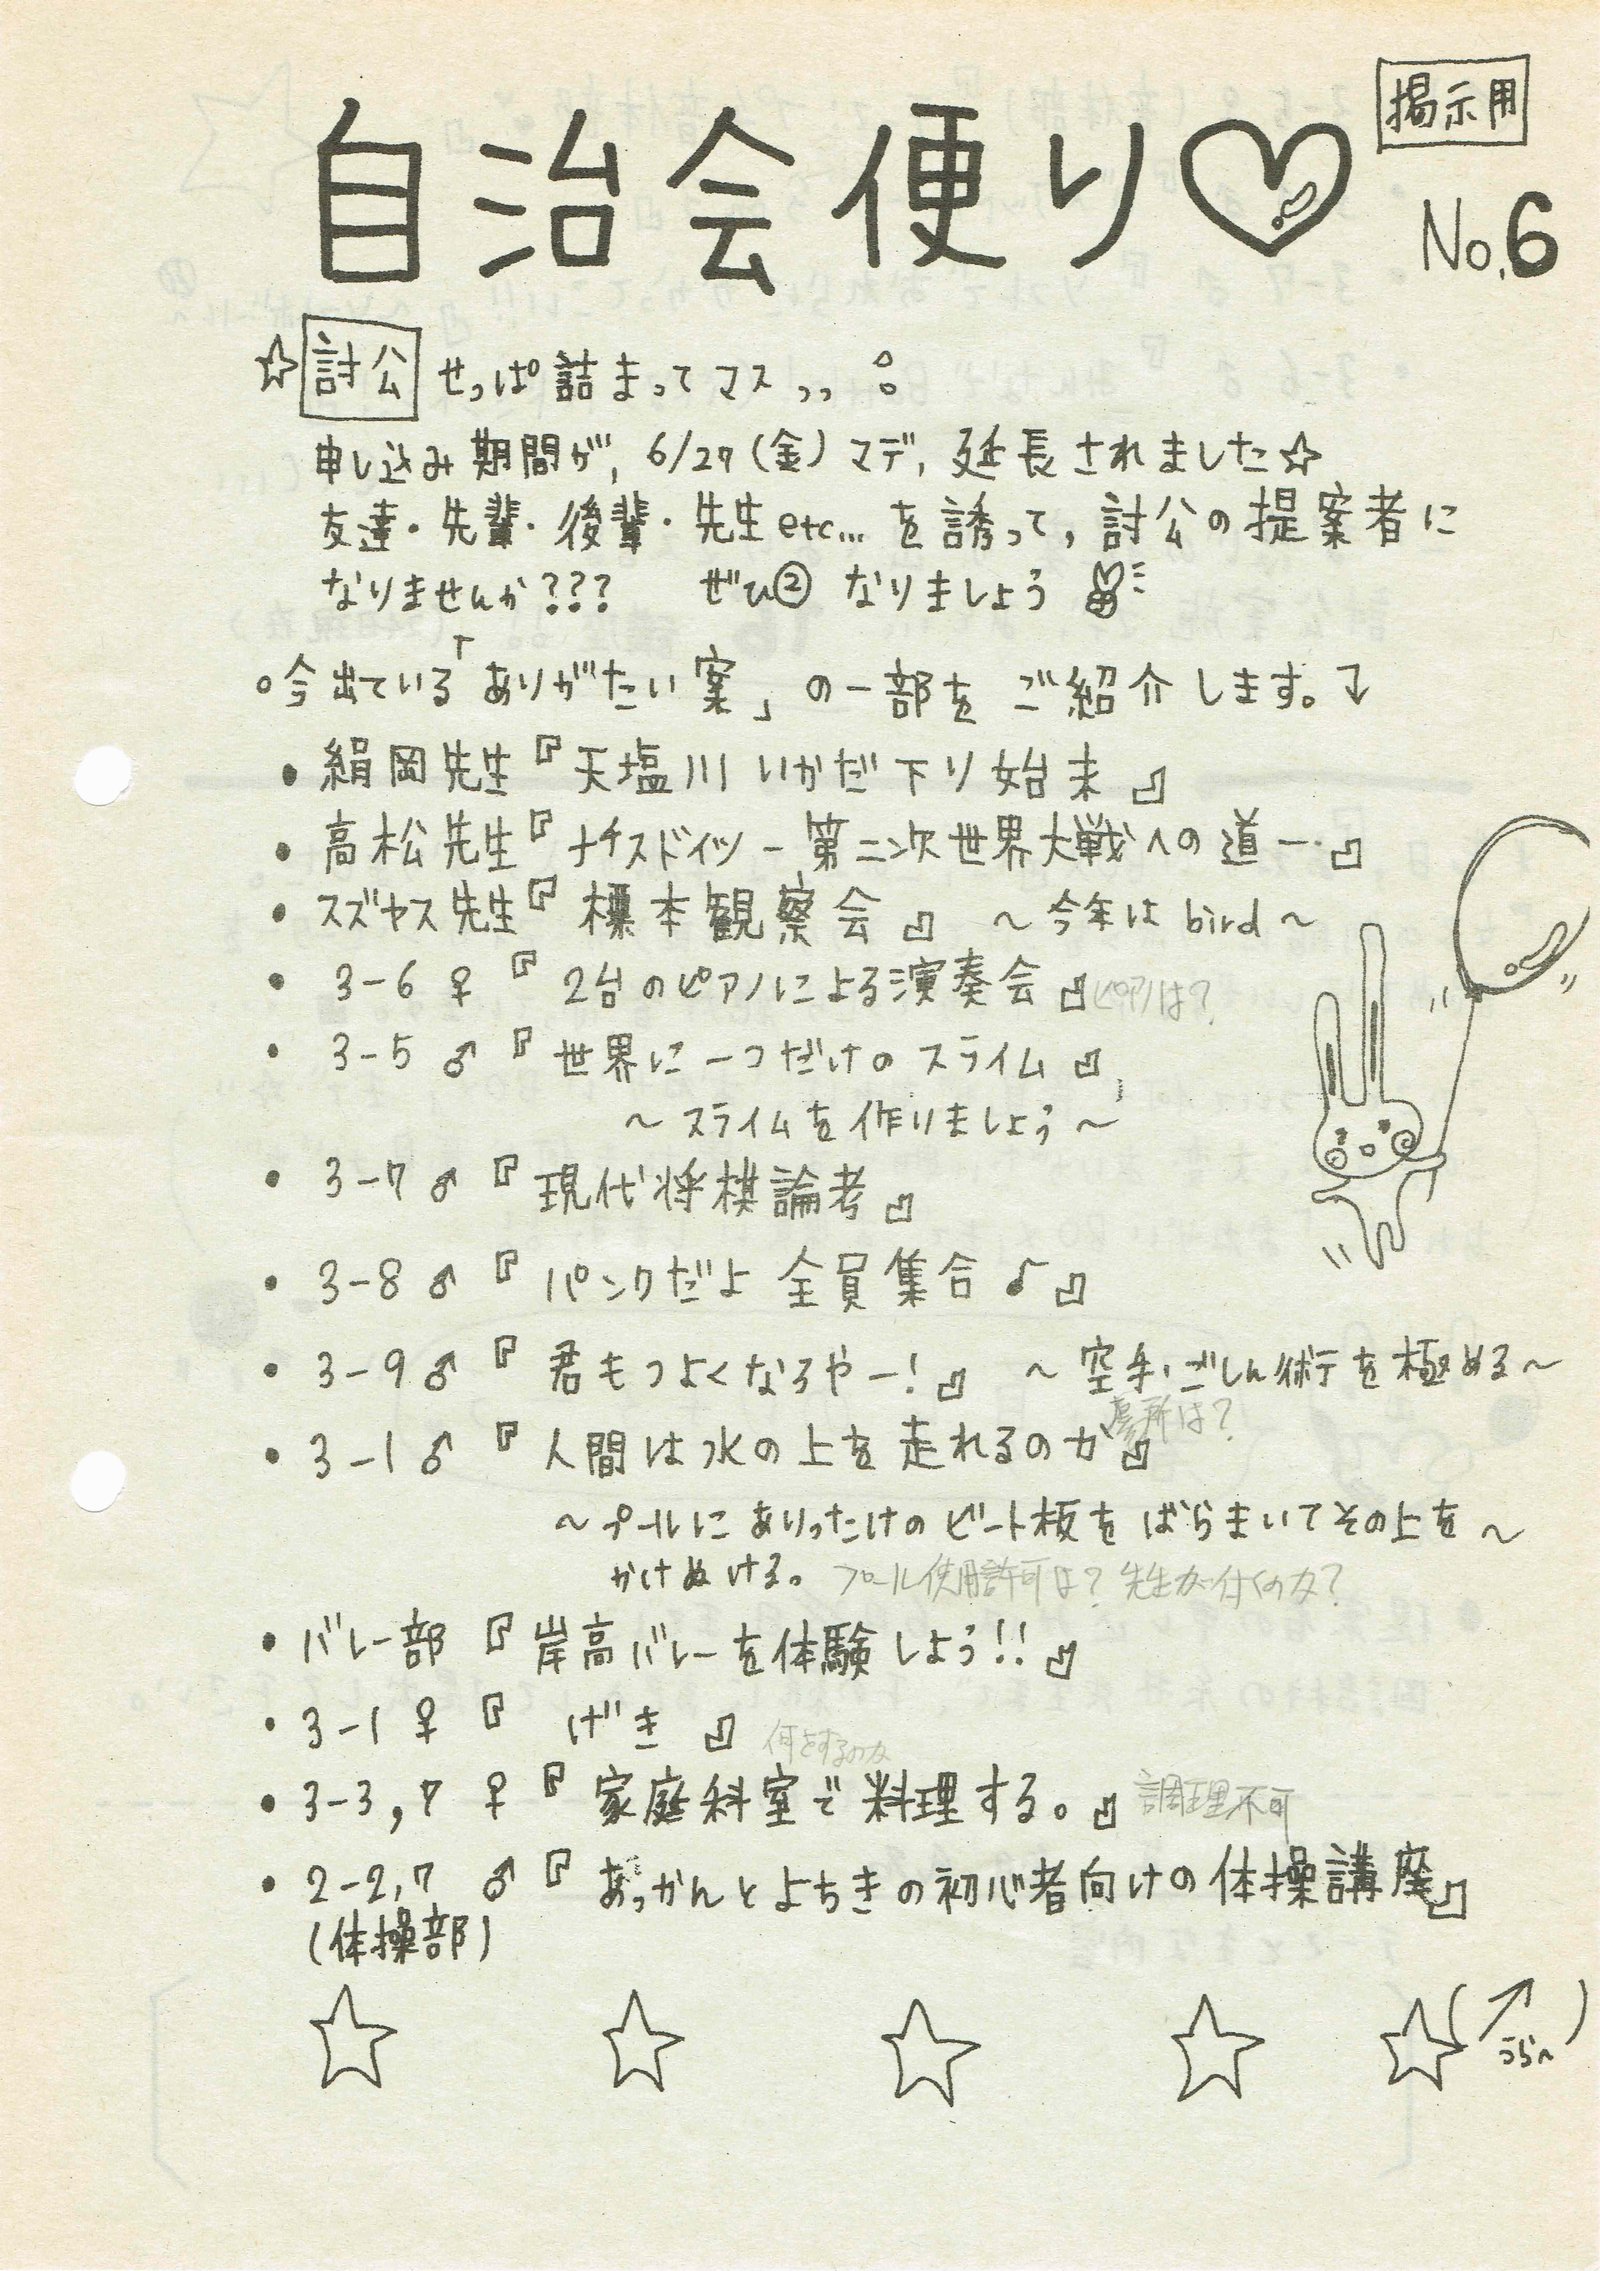 掲示用
自治会便り♡
No.6
☆討公 せっぱ詰まってマスっっ
申し込み期間が, 6/27(金)マデ, 延長されました☆
友達・先輩・後輩・先生etc...を誘って, 討公の提案者に
なりませんか??? ぜひ② なりましょう
○今出ている「ありがたい案」の一部をご紹介します。↴
・絹岡先生『天塩川いかだ下り始末』
・高松先生『ナチスドイツ-第二次世界大戦への道-』
・スズヤス先生『標本観察会』 ~今年はbird~
・3-6♀『2台のピアノによる演奏会』ピアノは?
・3-5♂『世界に一つだけのスライム』
~スライムを作りましょう~
・3-7♂『現代将棋論考』
・3-8♂『パンクだよ全員集合♪』
・3-9♂『君もつよくなろやー!』 ~空手・ごしん術を極める~
場所は?
・3-1♂『人間は水の上を走れるのか』
~プールにありったけのビート板をばらまいてその上を~
かけぬける。 プール使用許可は?先生が付くのか?
・バレー部『岸高バレーを体験しよう!!』
・3-1♀『げき』
何をするのか
・3-3,7♀『家庭科室で料理する。』調理不可
・2-2,7♂『あっかんとよちきの初心者向けの体操講座』
(体操部)
☆ ☆ ☆ ☆ ☆(↗うらへ)